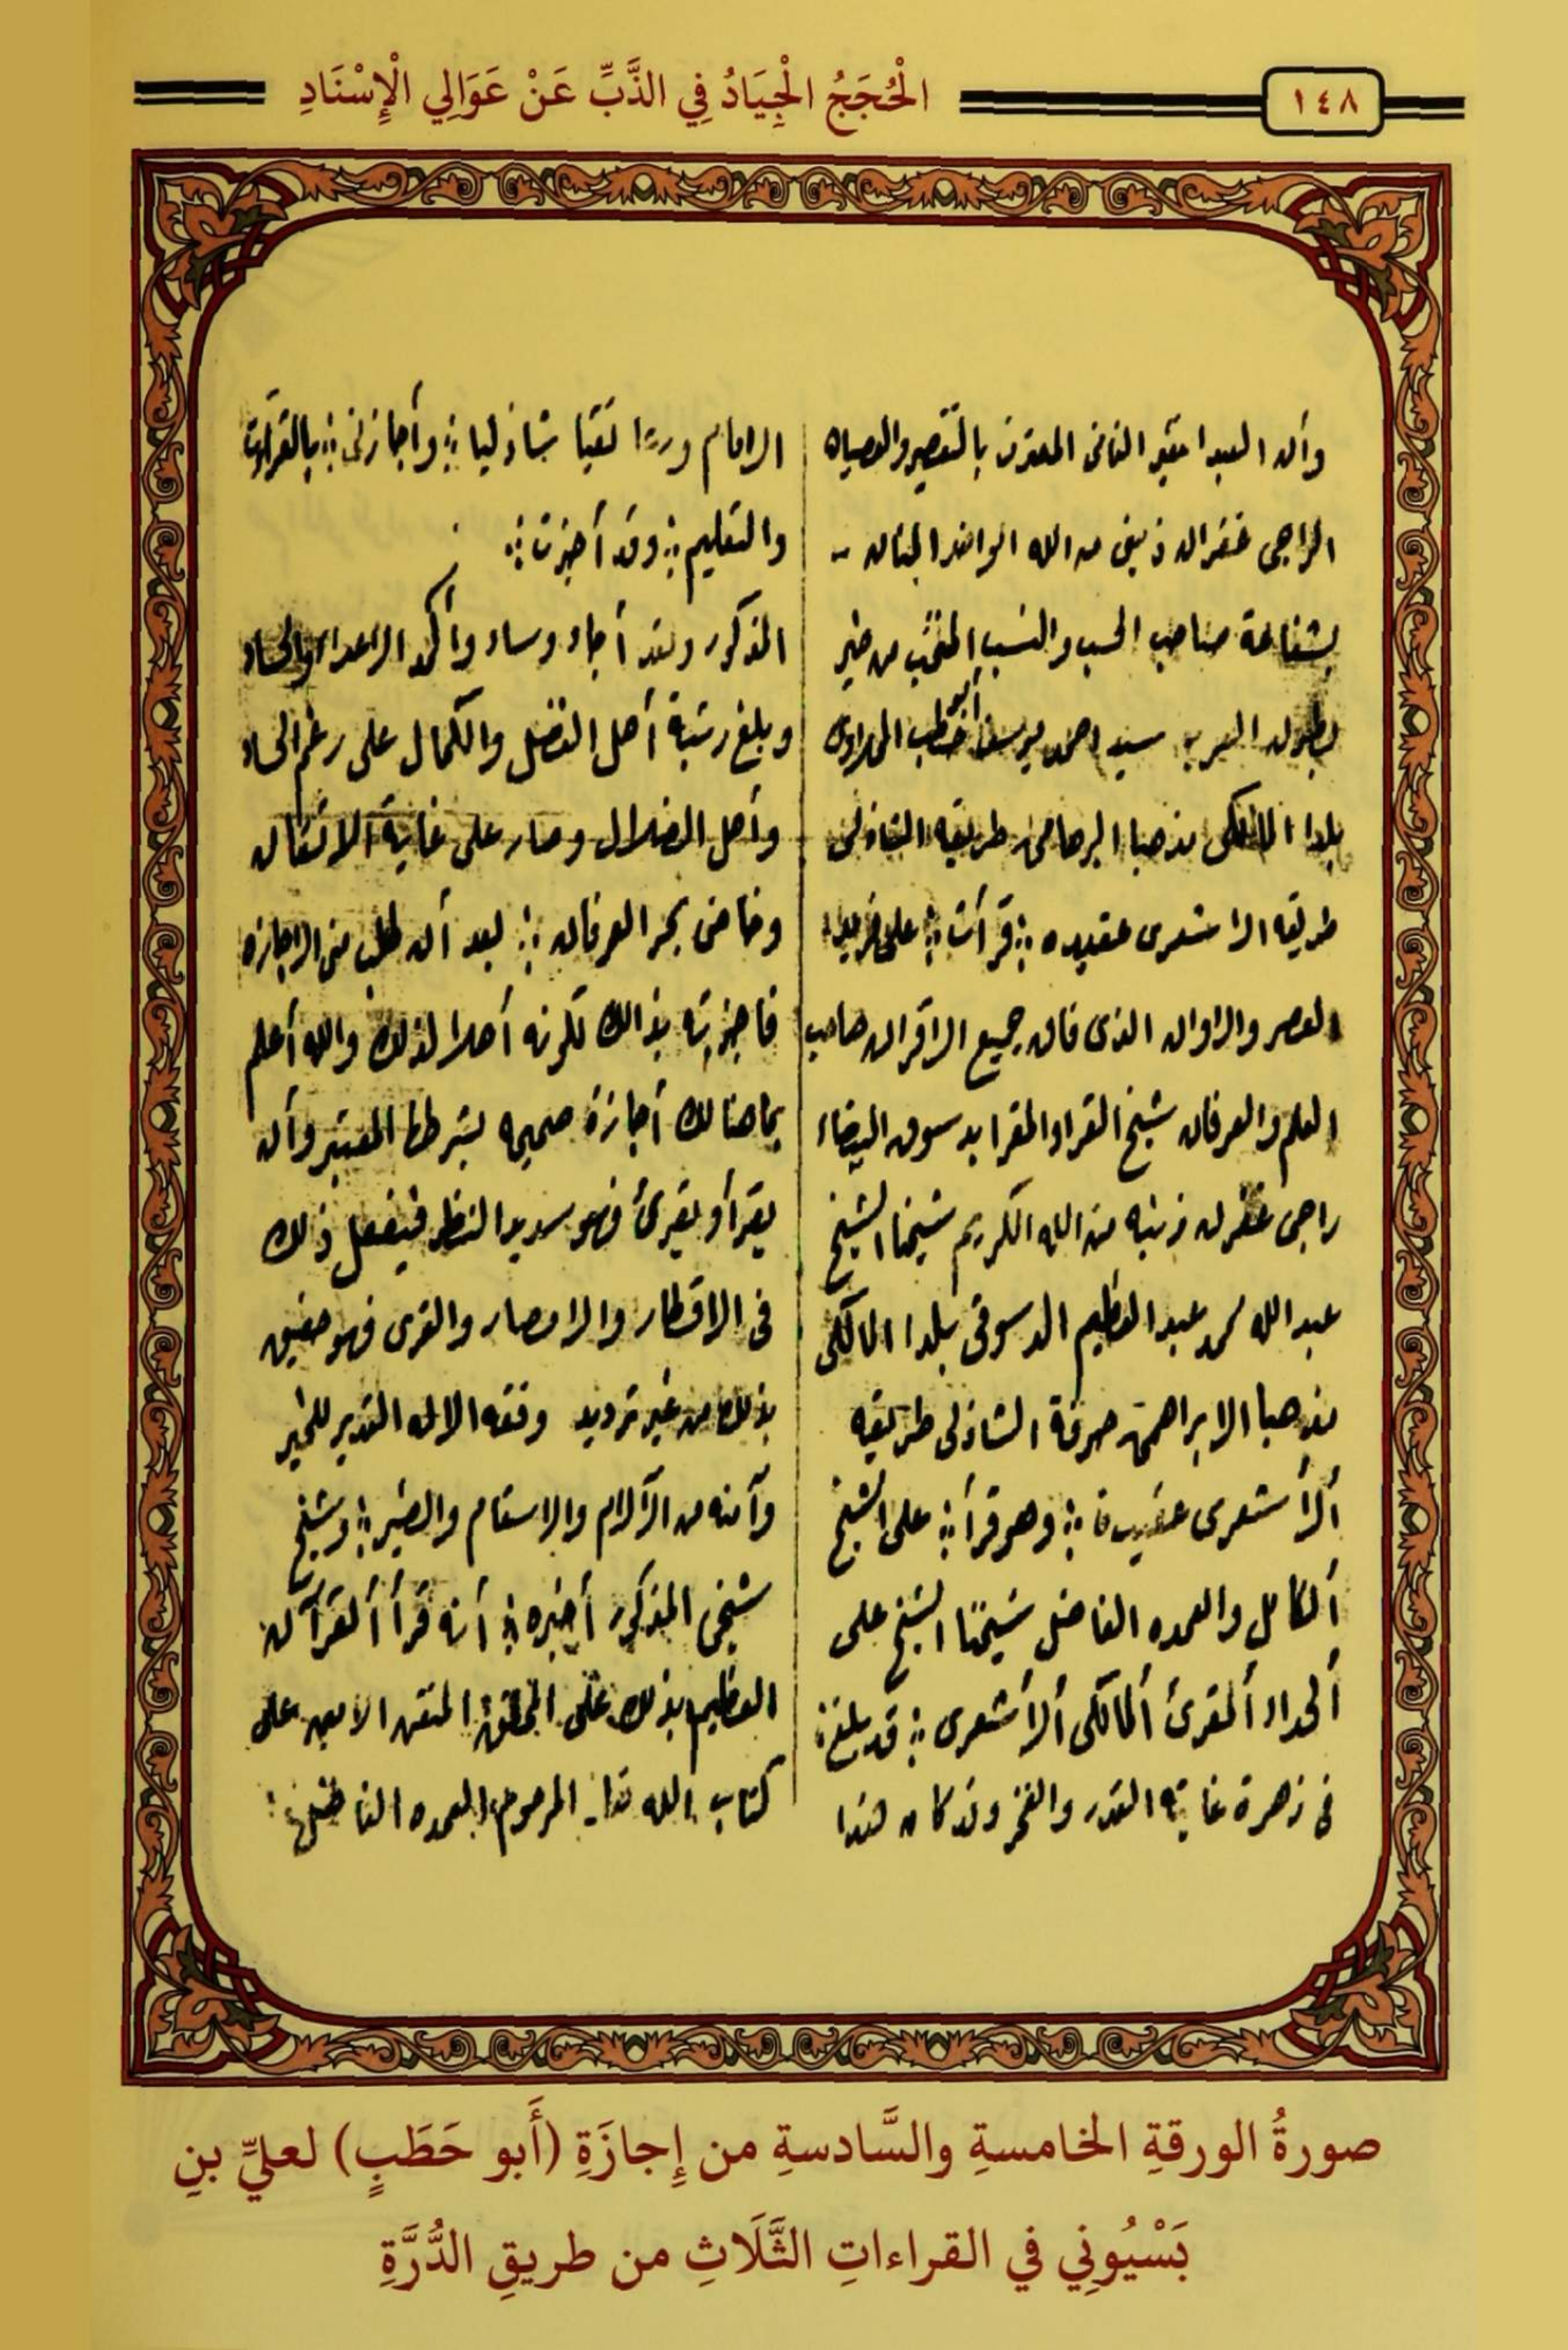 ١٤٨
الْحُجَجُ الْجِيَادُ فِي الذَّبِّ عَنْ عَوَالِي الْإِسْنَادِ
وأن العبد الفقير الفانى المعترف بالتقصير والعصيان
الراجى غفران ذنبى من الله الواحد المنان
بشفاعة صاحب الحسب والنسب المنتخب من خير
بطون العرب سيد احمد يوسف أبو حطب المحلاوى
بلدا المالكى مذهبا البرهامى طريقه الشاذلى
طريقه الا شعرى عقيده قرأت على فريد
العصر والاوان الذى فاق جميع الاقران صاحب
العلم والعرفان شيخ القراء والمقرا بدسوق البيضاء
راجى غفران ذنبه من الله الكريم شيخنا الشيخ
عبدالله محمد عبدالعظيم الدسوقى بلدا المالكى
مذهبا الابراهمى خرقة الشاذلى طريقه
ألأ شعرى عقيدة وهو قرأ على الشيخ
ألكامل والعمده الفاضل شيخنا الشيخ على
ألحداد ألمقرئ ألمالكى ألأشعرى قد بلغ
فى زهرة غاية القدر والفخر وقد كان هذا
الامام ورعا تقيا شاذليا وأجازنى بالقرآءت
والتعليم وقد أجزت
المذكور ولقد أجاد وساد وأكمد الاعداء والحساد
وبلغ رتبة أهل الفضل والكمال على رغم الحساد
وأهل الضلال وصار على غاية الاتقان
وخاض بحر العرفان بعد أن طلب منى الاجازه
فاجزته بذالك لكونه أهلا لذلك والله أعلم
بما هنالك أجازة صحيحه بشرطها المعتبر وأن
يقرأ ويقرئ فهو سديد النظر فيفعل ذلك
فى الاقطار والامصار والقرى فهو حقيق
بذلك من غير ترديد وفقه الاله القدير للخير
وآمنه من الآلام والاسقام والضير وشيخ
شيخى المذكور أخبره أنه قرأ ألقرآن
العظيم بذلك على المحقق المتقن الامين على
كتاب الله المرحوم العمده الفاضل
صورةُ الورقةِ الخامسةِ والسَّادسةِ من إِجازَةِ (أَبو حَطَبٍ) لعليِّ بنِ
بَسْيُونِي في القراءاتِ الثَّلَاثِ من طريقِ الدُّرَّةِ